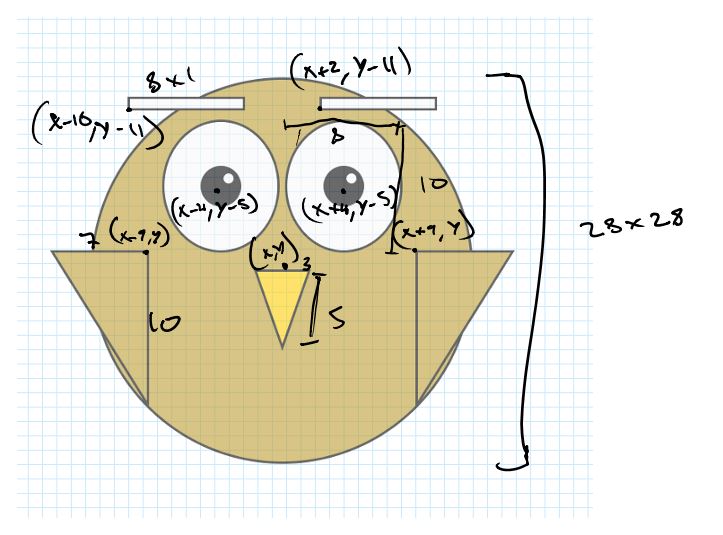 8 x 1
(x+2, y-11)
(x-10, y-11)
8
10
(x-4, y-5)
(x+4, y-5)
28 x 28
7 (x-9, y)
(x, y)
3
(x+9, y)
10
5